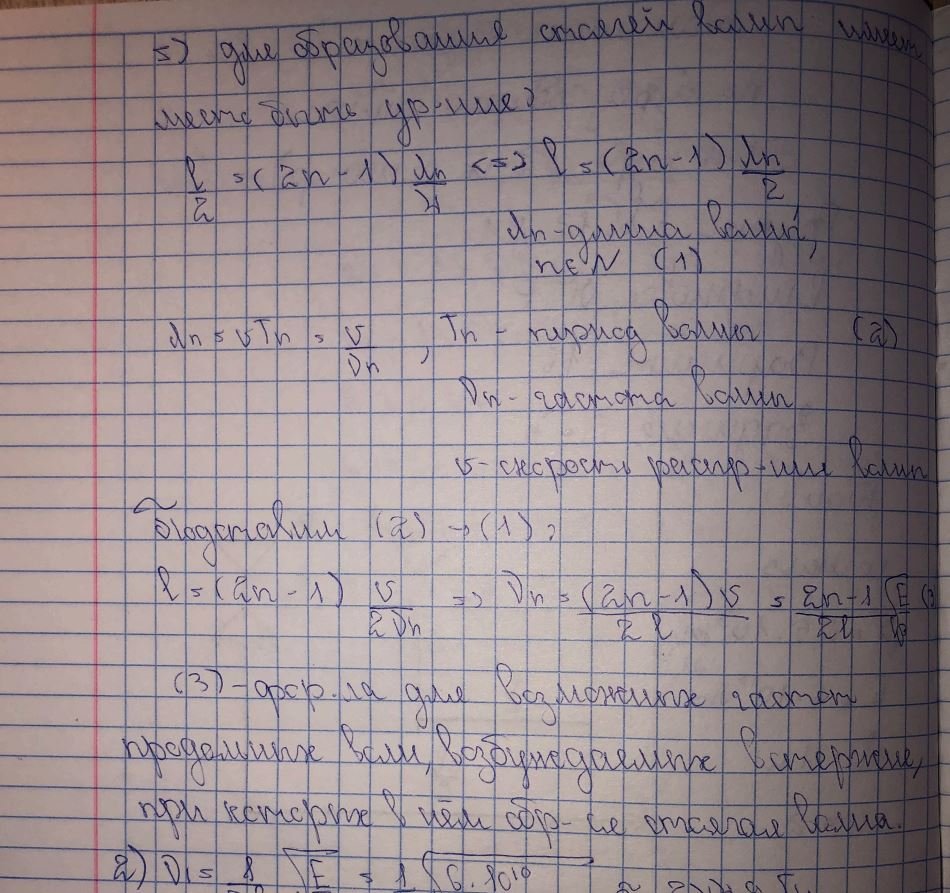 5) для образования стоячей волны имеет
место быть ур-ние:
l/2 = (2n-1) λn/4 <=> l = (2n-1) λn/2
λn - длина волны,
n∈N (1)
λn = vTn = v/νn , Tn - период волны (2)
νn - частота волны
v - скорость распр-ния волны
Подставим (2) → (1):
l = (2n-1) v/2νn => νn = (2n-1)v/2l = 2n-1/2l √E/√ρ (3)
(3) - фор-ла для возможных частот
продольных волн, возбуждаемых в стержне,
при которых в нём обр-ся стоячая волна.
2) ν1 = 1 √E = 1 √6·10¹⁰